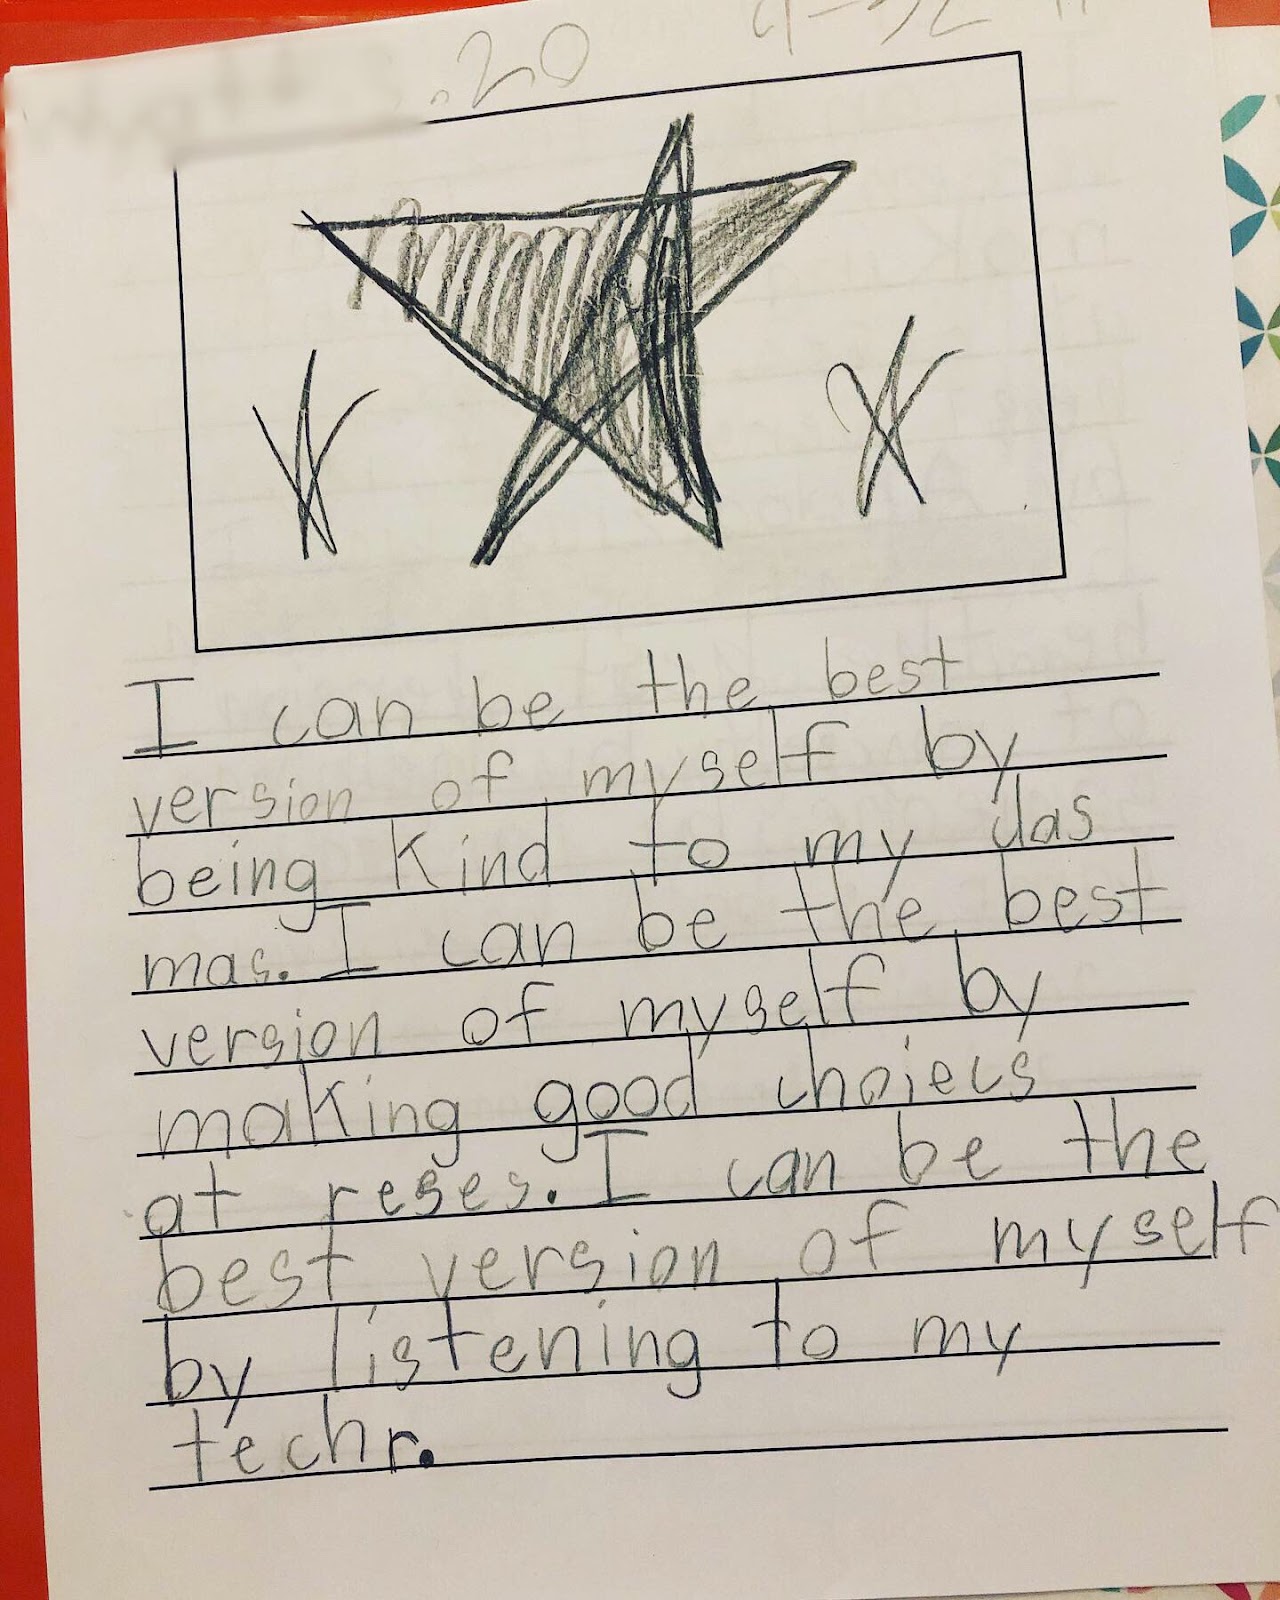 .20
I can be the best
version of myself by
being Kind to my clas
mas. I can be the best
version of myself by
making good choiecs
at reses. I can be the
best version of myself
by listening to my
techr.